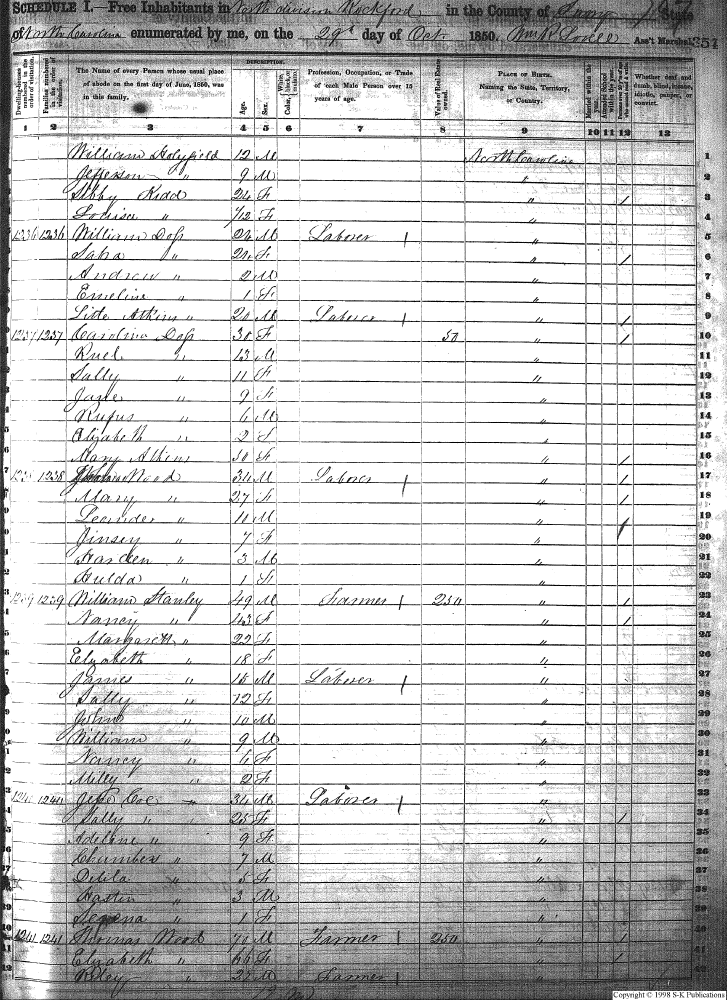 SCHEDULE I.—Free Inhabitants in North division Rockford in the County of Surry State
of North Carolina enumerated by me, on the 29th day of Oct. 1850. Wm R. Lovell Ass't Marshal 351
Dwelling-houses numbered in the order of visitation. Families numbered in the order of visitation. The Name of every Person whose usual place of abode on the first day of June, 1850, was in this family. DESCRIPTION. Age. Sex. Color, White, black, or mulatto. Profession, Occupation, or Trade of each Male Person over 15 years of age. Value of Real Estate owned. PLACE OF BIRTH. Naming the State, Territory, or Country. Married within the year. Attended School within the year. Whether deaf and dumb, blind, insane, idiotic, pauper, or convict.
1 2 3 4 5 6 7 8 9 10 11 12 13
William Holyfield 12 M North Carolina 1
Jefferson " 9 M " 2
Sibby Kidd 24 F " / 3
Louisa " 7/12 F " 4
1236 1236 William Doss 24 M Laborer / " 5
Saba " 24 F " / 6
Andrew " 2 M " 7
Emeline " 1 F " 8
Atkins " 20 M Laborer / " / 9
1237 1237 Carolina Doss 30 F 50 " / 10
Ruel " 13 M " 11
Sally " 11 F " 12
Jane " 9 F " 13
Rufus " 6 M " 14
Elizabeth " 2 F " 15
Mary Atkins 30 F " / 16
1238 1238 Wood 34 M Laborer / " / 17
Mary " 27 F " / 18
Leander " 10 M " 19
Jinsey " 7 F " / 20
Harden " 3 M " 21
Hulda " 1 F " 22
1239 1239 William Stanley 49 M Farmer / 250 " / 23
Nancy " 43 F " / 24
Margarett " 22 F " 25
Elizabeth " 18 F " 26
James " 15 M Laborer / " 27
Sally " 12 F " 28
John " 10 M " 29
William " 9 M " 30
Nancy " 6 F " 31
Milly " 2 F " 32
1240 1240 Jesse Coe 34 M Laborer / " 33
Sally " 25 F " / 34
Adeline " 9 F " 35
Chumbers " 7 M " 36
Delila " 5 F " 37
Hastin " 3 M " 38
Serena " 1 F " 39
1241 1241 Thomas Wood 70 M Farmer / 250 " / 40
Elizabeth " 66 F " / 41
Riley " 27 M Farmer / " 42
Copyright © 1998 S-K Publications